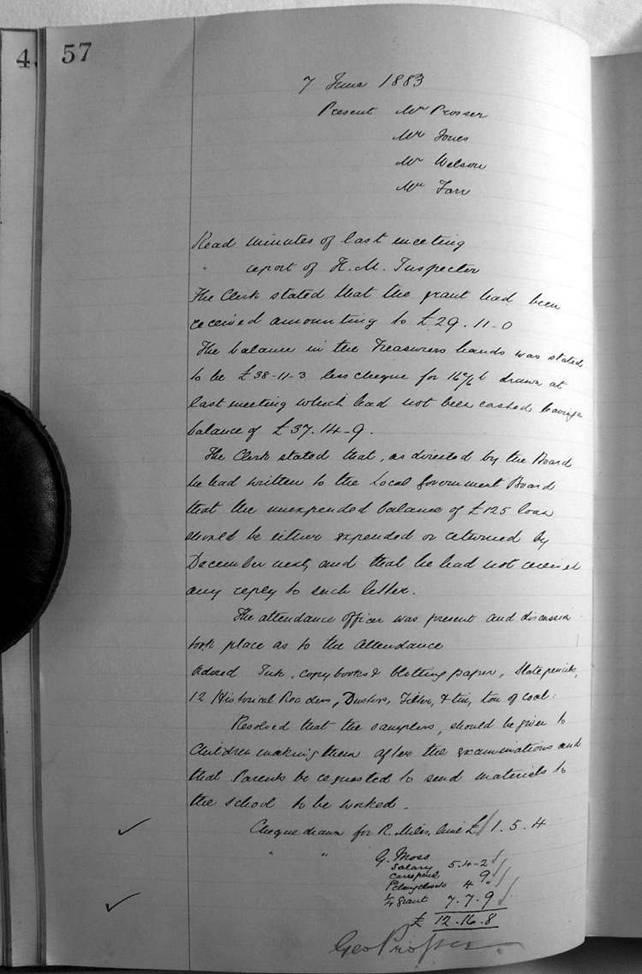 4.
57
7 June 1883
Present Mr Prosser
Mr Jones
Mr Welson
Mr Farr
Read minutes of last meeting
" report of H. M. Inspector
The Clerk stated that the grant had been
received amounting to £29.11-0
The balance in the Treasurers hands was stated
to be £38-11-3 less cheque for 16/6 drawn at
last meeting which had not been cashed leaving a
balance of £37.14-9.
The Clerk stated that, as directed by the Board
he had written to the Local Government Board
that the unexpended balance of £125 loan
should be either expended or returned by
December next, and that he had not received
any reply to such letter.
The attendance officer was present and discussion
took place as to the attendance
Ink, copy books & blotting paper, Slate pencils,
12 Historical Readers, Dusters, & ton of coal.
Resolved that the samplers, should be given to
Children making them after the examinations and
that Parents be requested to send materials to
the school to be worked.
Cheque drawn for R. Miles £ 1. 5. 4
" " G. Moss
Salary 5.4-2
9
4
¼ Grant 7. 7. 9
£ 12.16.8
Geo Prosser